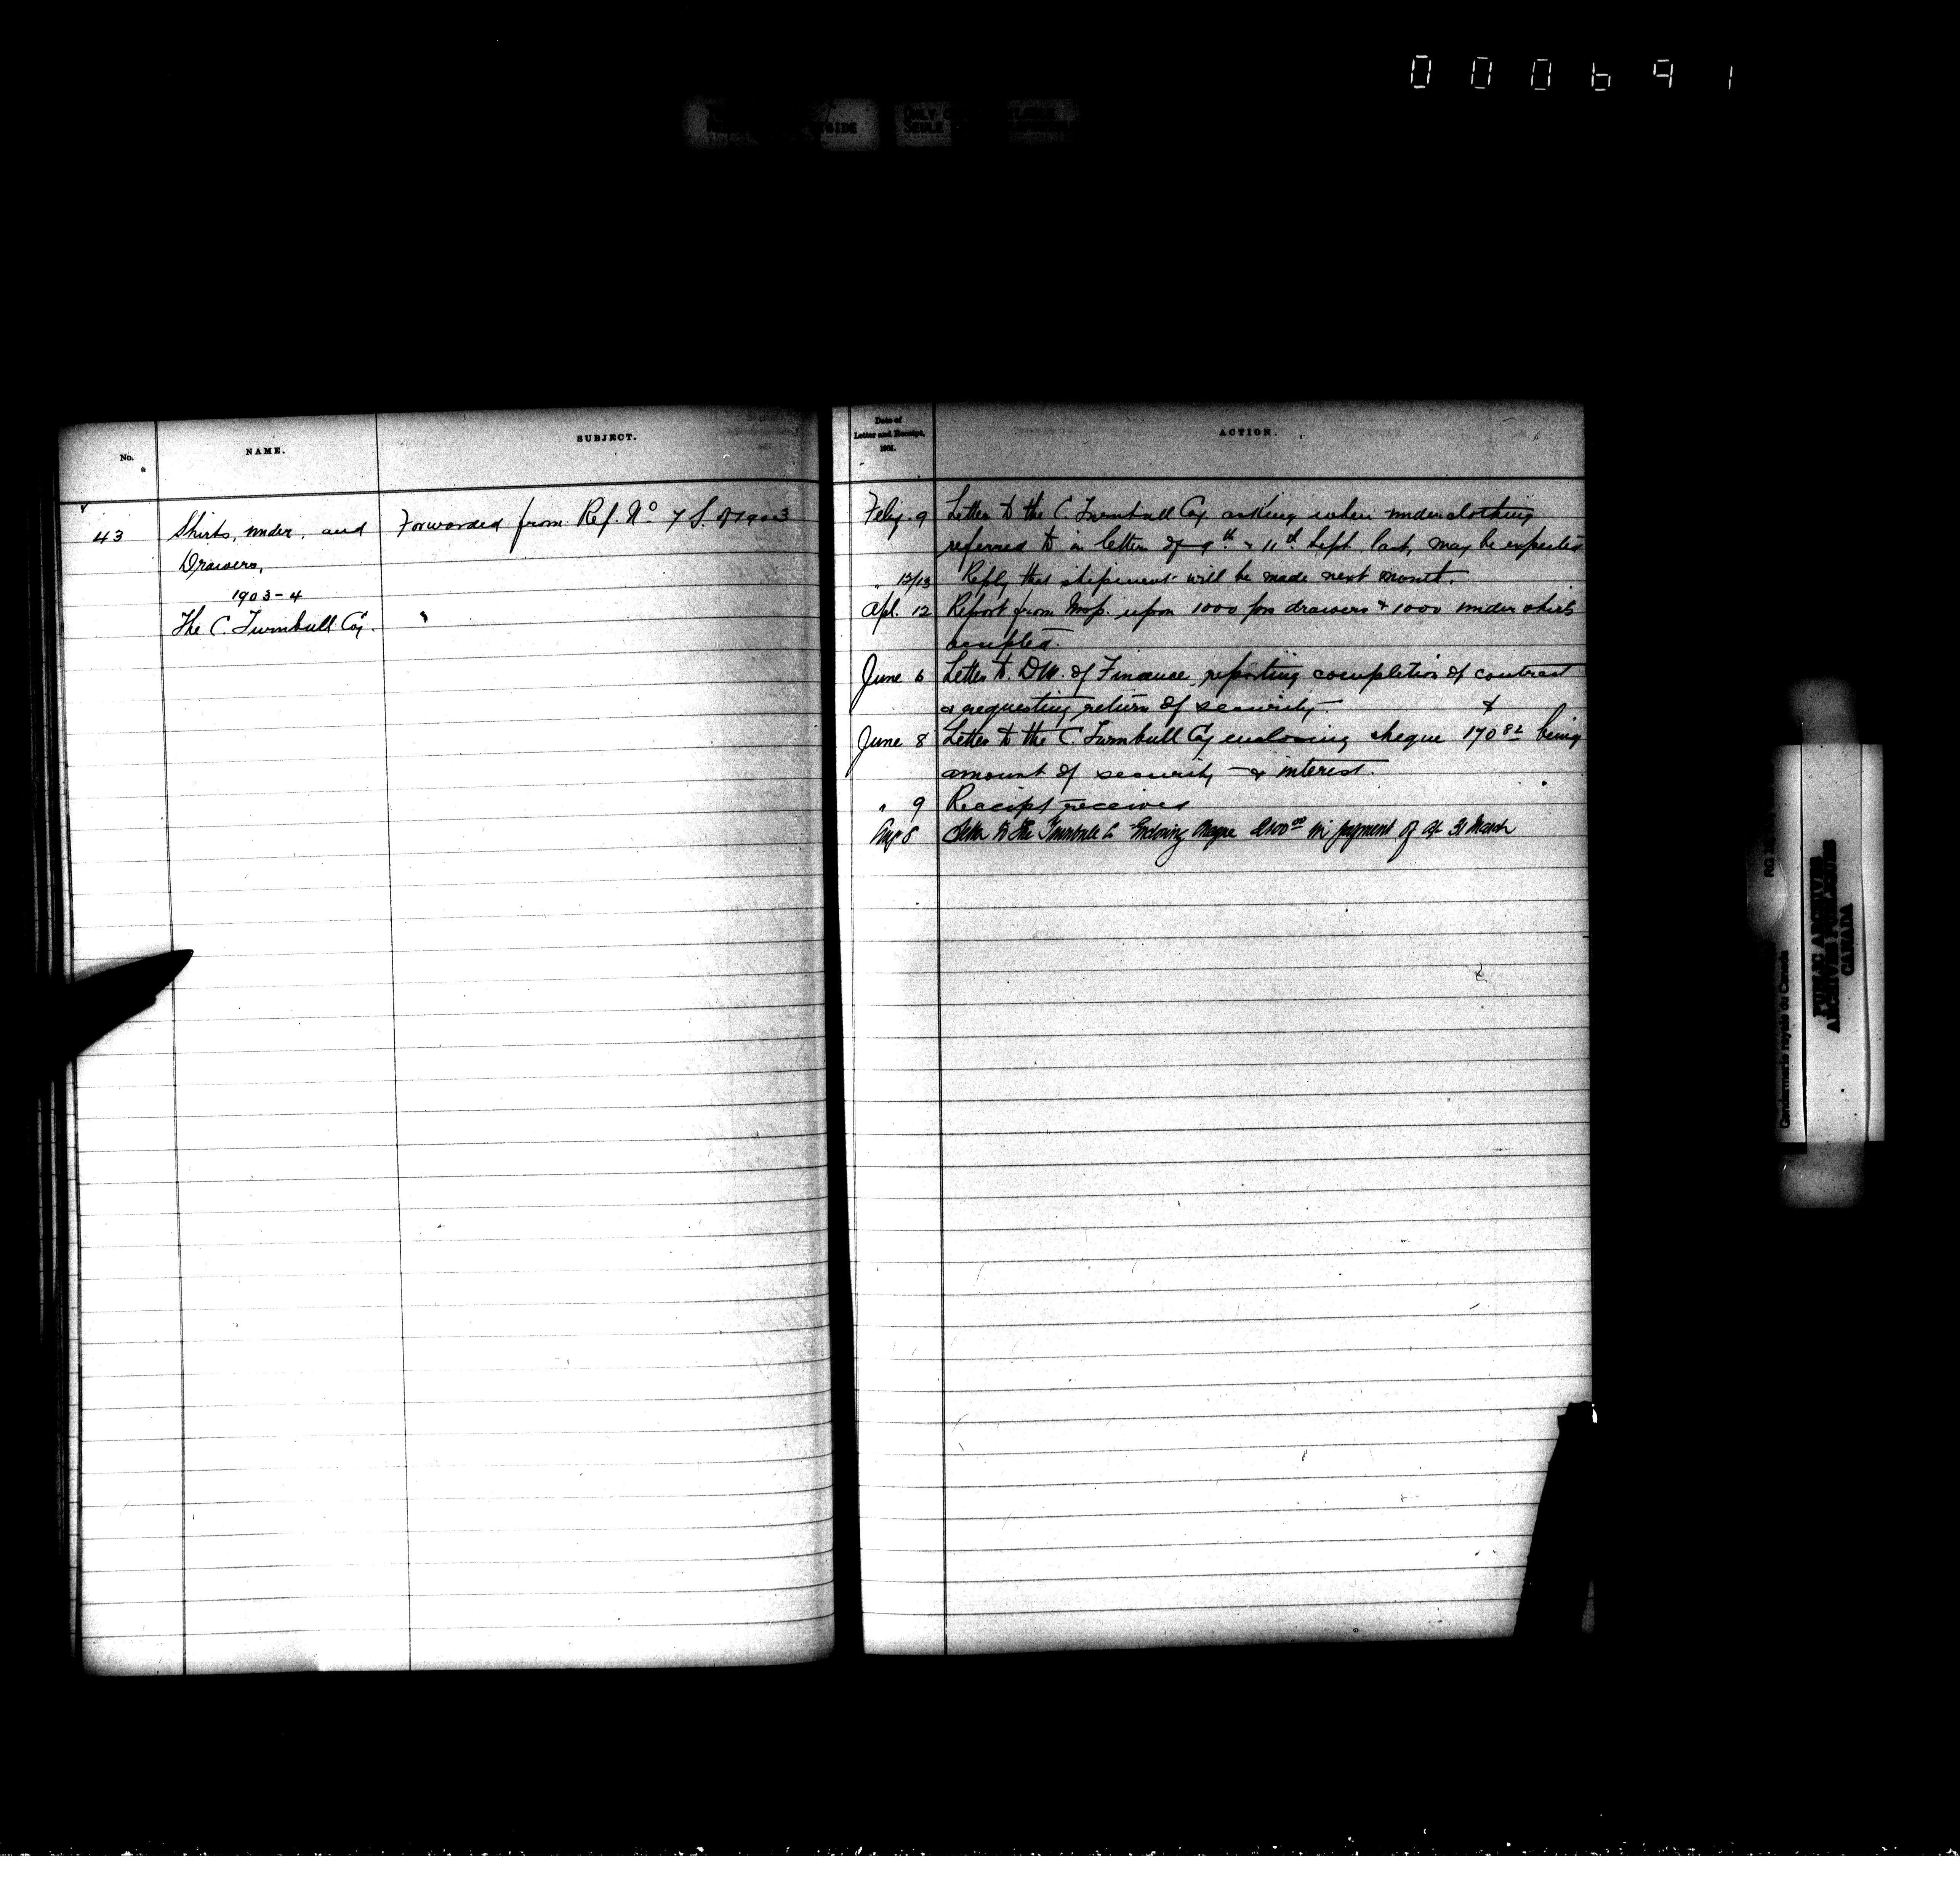 000691
No.
NAME.
SUBJECT.
43
Shirts, under, and
Drawers,
1903-4
The C. Turnbull Coy.
Forwarded from Ref. No 7 S. of 1903
Date of
Letter and Receipt,
1904.
ACTION.
Feby. 9 Letter to the C. Turnbull Coy. asking when underclothing
referred to in letter of 9th & 11th Sept. last, may be expected
" 12/13 Reply that shipment will be made next month.
Apl. 12 Report from upon 1000 prs drawers & 1000 under shirts
accepted.
June 6 Letter to D.M. of Finance reporting completion of contract
& requesting return of security
June 8 Letter to the C. Turnbull Coy enclosing cheque 170 82 being
amount of security & interest.
" 9 Receipt received
Aug 8 Letter to the Turnbull Co Enclosing cheque in payment of a/c 31 March
RG
Gendarmerie royale du Canada
PUBLIC ARCHIVES
ARCHIVES PUBLIQUES
CANADA